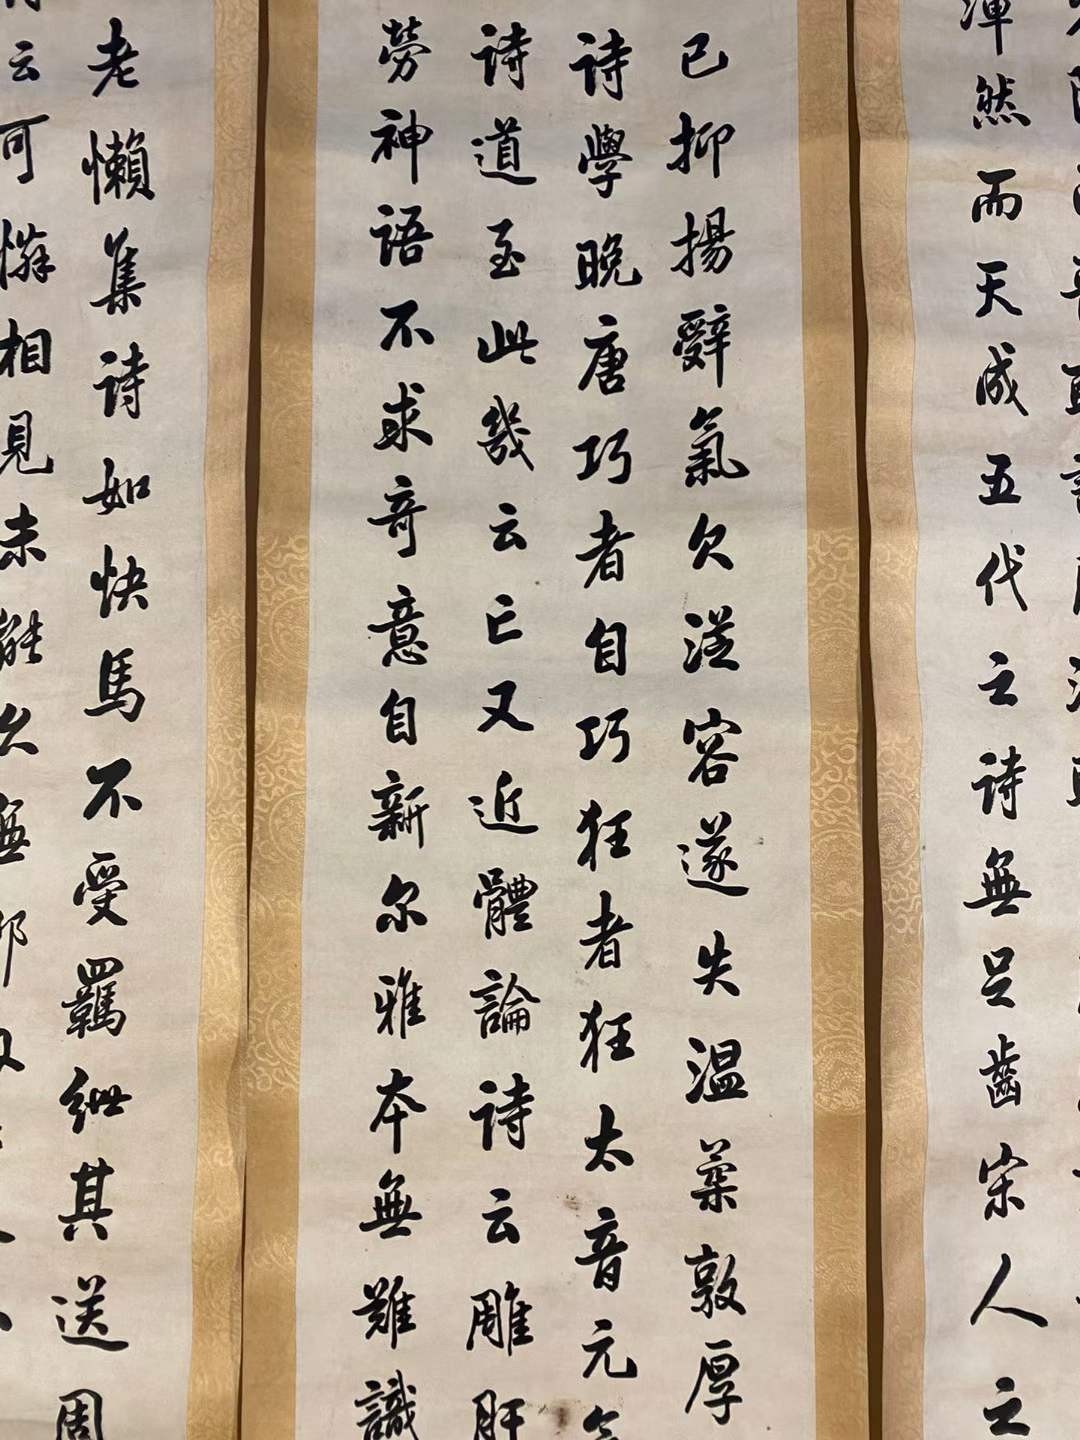 渾然而天成五代之詩無足齒宋人之
已抑揚辭氣欠從容遂失溫柔敦厚
詩學晚唐巧者自巧狂者狂太音元氣
詩道至此幾云亡又近體論詩云雕肝
勞神語不求奇意自新尔雅本無難識
老懶集詩如快馬不受羈紲其送周
云可憐相見未能久無那